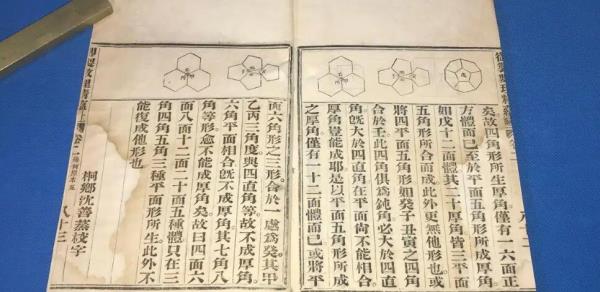 矣故四角形所生厚角僅有一六面正
方體而已至於平面五角形所成厚角
如戊十二面體其二十厚角皆三平面
五角形所合而成此外更無他形也或
將四平面五角形如癸子丑寅之四角
合於壬此四角俱爲鈍角必
大於四直角在平面尚不能相合
厚角豈能成耶是以平面五角形所成
之厚角僅有一十二面體而已或將平
面六角形之三形合於一處爲癸其甲
乙丙三角度與四直角等故不成厚角
六角平面相合旣不成厚角其七角八
角等形愈不能成厚角矣故曰四面六
面八面十二面二十面五種體只在三
角四角五角三種平面形所生此外不
能復成他形也
桐鄉沈善蒸校字
御製數理精蘊上編卷二 幾何原本五
八十三